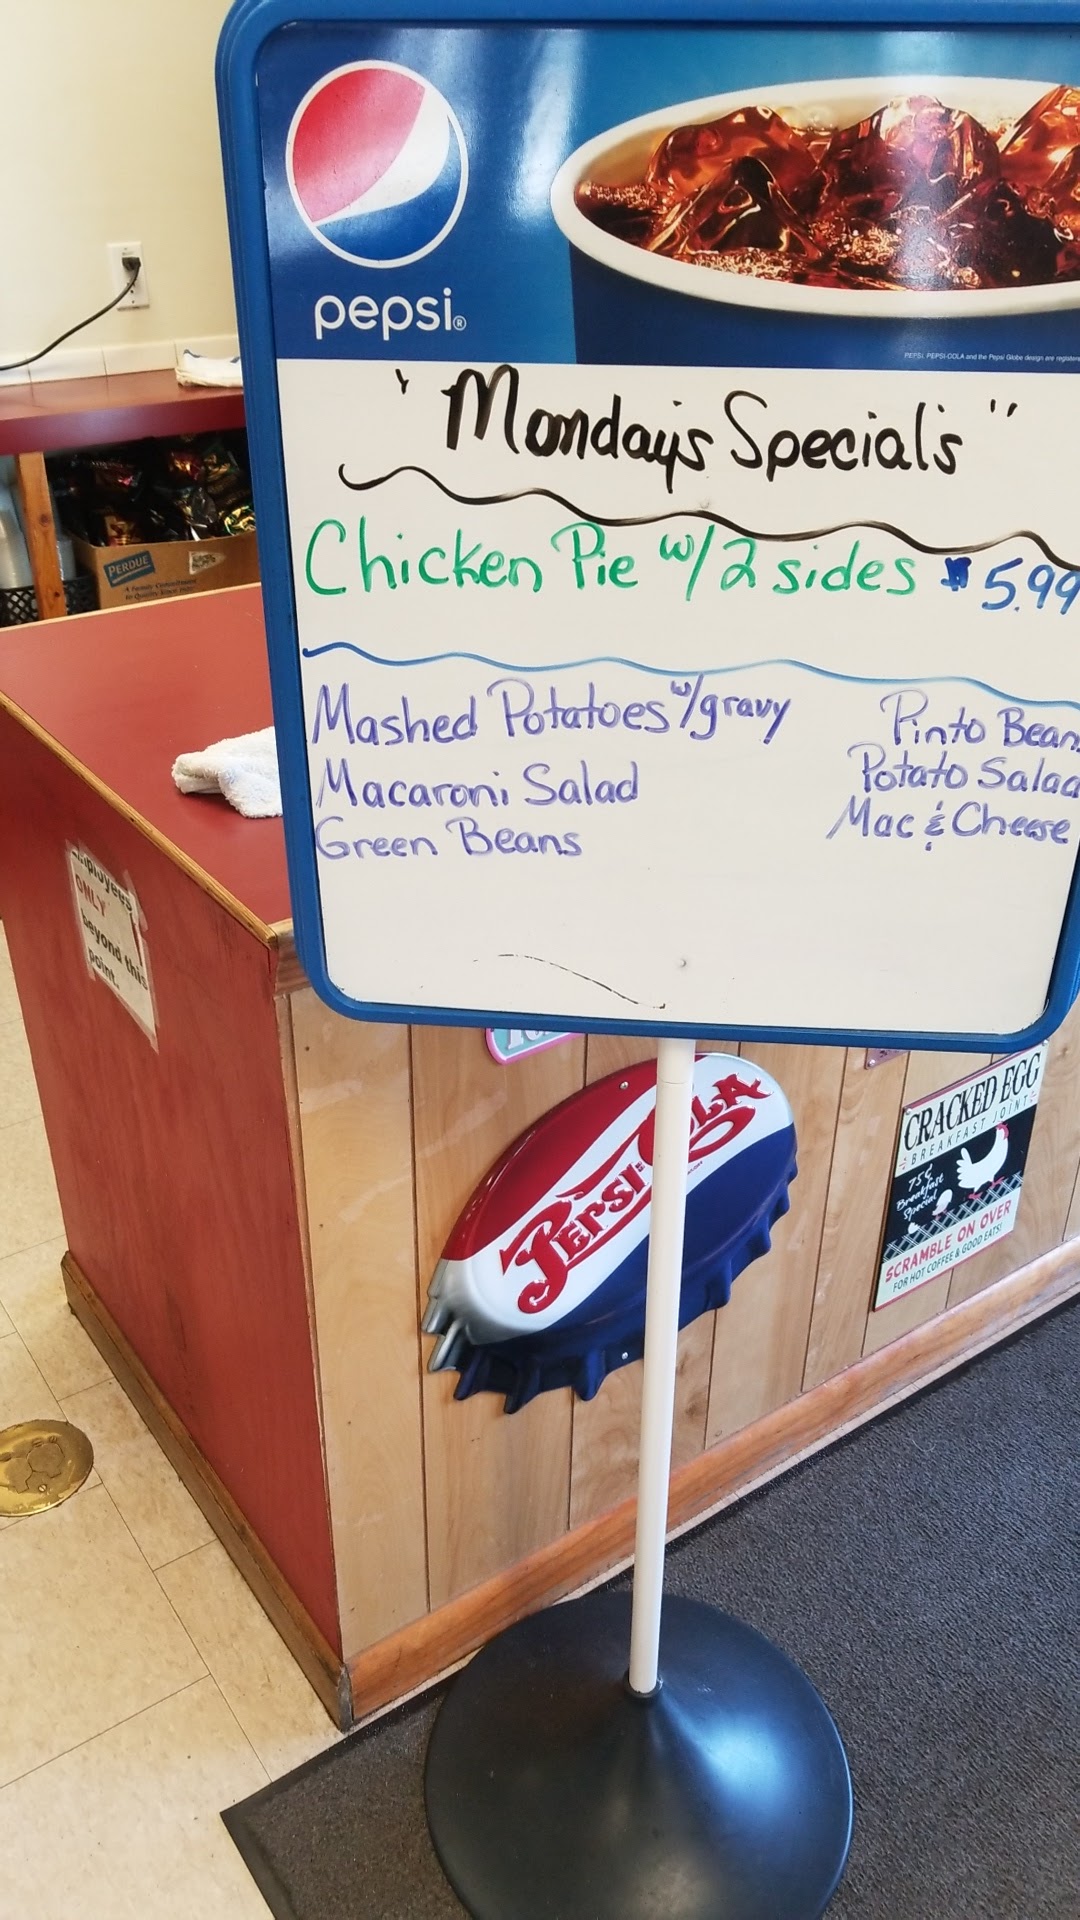 pepsi®
PEPSI, PEPSI-COLA and the Pepsi Globe design are
"Monday's Special's"
Chicken Pie w/ 2 sides $5.99
Mashed Potatoes w/gravy
Macaroni Salad
Green Beans
Pinto Bean
Potato Salad
Mac & Cheese
PERDUE
A Family Commitment
to Quality Since 1920
Employees
ONLY
beyond this
point.
PEPSI COLA
CRACKED EGG
BREAKFAST JOINT
75¢
Breakfast
Special
SCRAMBLE ON OVER
FOR HOT COFFEE & GOOD EATS!